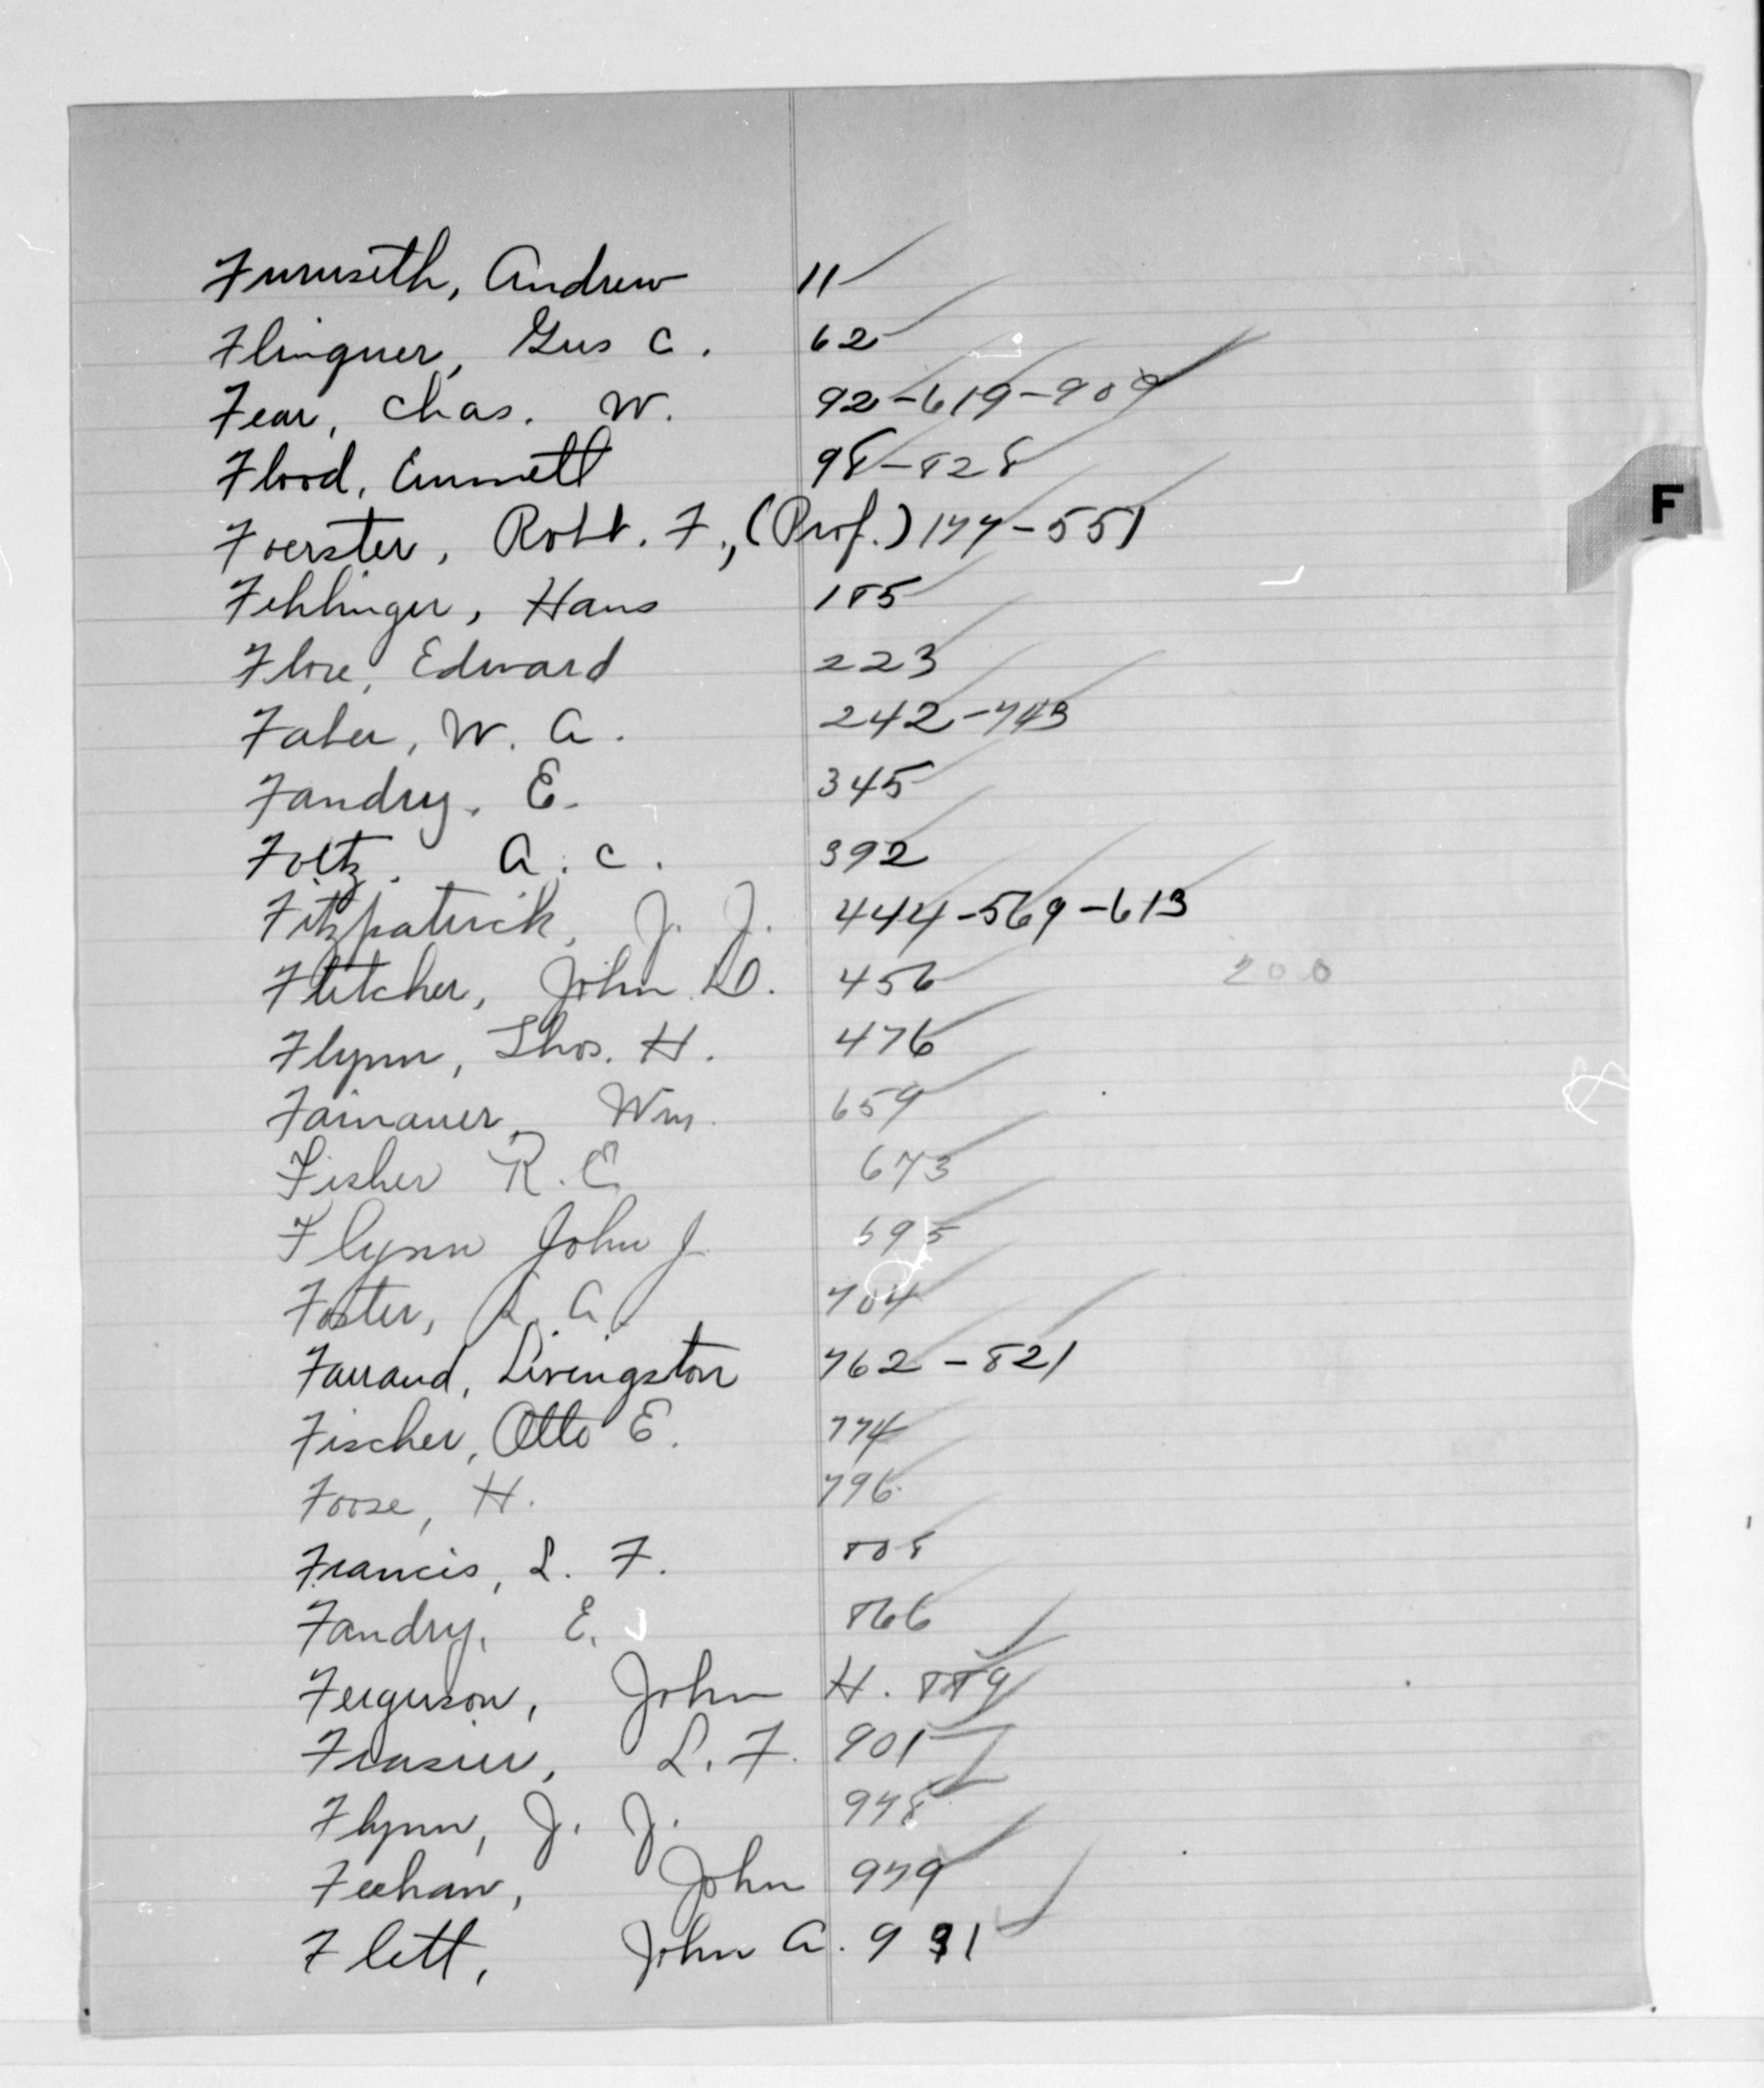 Furuseth, Andrew 11
Flinguer, Gus C. 62
Fear, Chas. W. 92-619-909
Flood, Emmett 98-828
F
Foerster, Robt. F., (Prof.) 177-551
Fehlinger, Hans 185
Flore, Edward 223
Faber, W. A. 242-743
Fandry, E. 345
Foltz, A. C. 392
Fitzpatrick, J. J. 444-569-613
Fletcher, John D. 456 200
Flynn, Thos. H. 476
Fainauer, Wm. 659
Fisher R. E 673
Flynn John J 695
Foster, A. A. 704
Farrand, Livingston 762-821
Fischer, Otto E. 774
Foose, H. 796
Francis, L. F. 808
Fandry, E. 866
Ferguson, John H. 889
Frasier, L. F. 901
Flynn, J. J. 978
Feehan, John 979
Flett, John A. 931